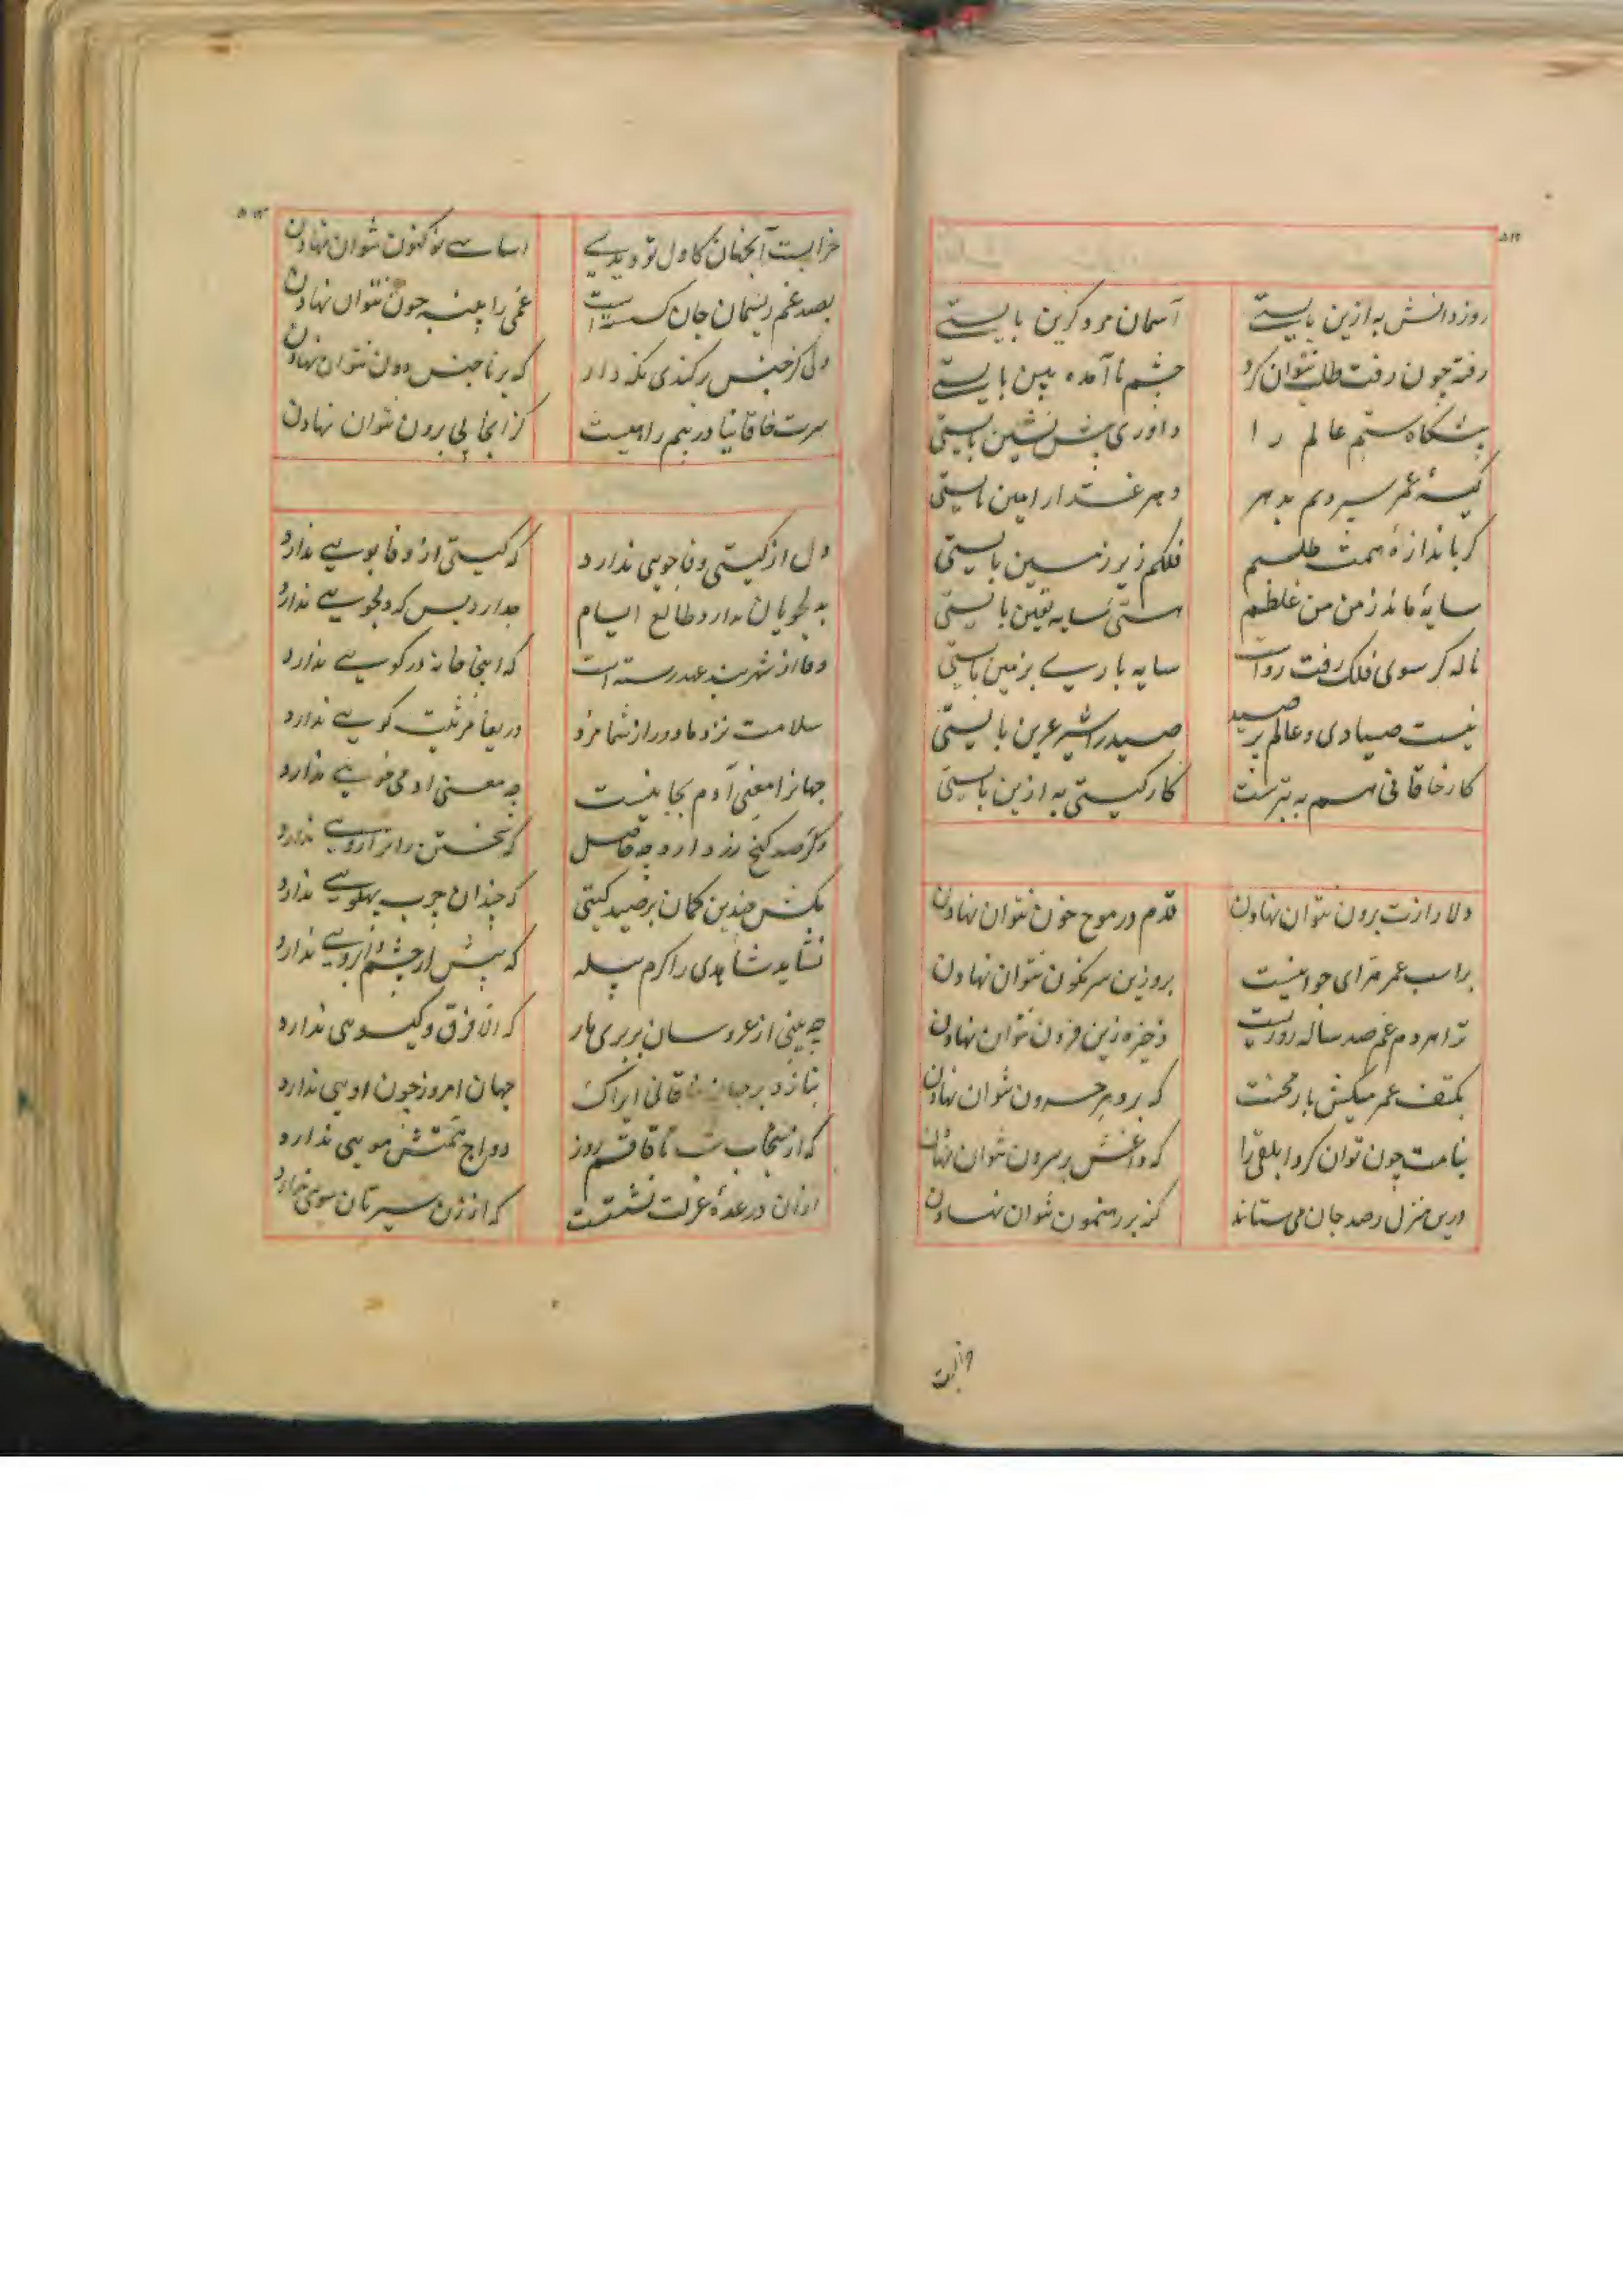 ۵۱۲
روز دانش به ازین بایستے آسمان مرد گزین بایستے
رفته چون رفت طلب نتوان کرد چشم ناآمده بین بایستے
پیشگاه ستم عالم را داوری پیش نشین بایستی
کیسهٔ عمر سپردیم بدهر دهر غدار امین بایستی
کر باندازهٔ همت طلبم فلکم زیر زمین بایستی
سایهٔ ماند ز من من غلطم هستئ سایه یقین بایستی
ناله کر سوی فلک رفت رواست سایه بارے بزمین بایستی
نیست صیادی و عالم پر صید صید را شیر عرین بایستی
کار خاقانی هم به بترست کار کیتی به ازین بایستی
دلا رازت برون نتوان نهادن قدم در موج خون نتوان نهادن
بر اسب عمر هرای جوانیست برو زین سرنکون نتوان نهادن
ترا هر دم غم صد ساله روزیست ذخیره زین فزون نتوان نهادن
بکتف عمر میکش بار محنت که بر دهر حرون نتوان نهادن
بنامت چون توان کرد ابلقی را که داغش بر سرون نتوان نهادن
درین منزل رصد جان می ستاند کنه بر رهنمون نتوان نهادن
خرابست
۵۱۳
خرابست آنجهان کاول تو دیدے اساسے نو کنون نتوان نهادن
بصد غم ریسمان جان کسسته است غمی را پنبه چون نتوان نهادن
دلی کز جنس برکندی نکه دار که بر ناجنس دون نتوان نهادن
سرت خاقانیا در بیم راهیست کز انجا پی برون نتوان نهادن
دل از کیتی وفاجویی ندارد که کیتی از وفا بویے ندارد
بدلجویان ندارد طالع ایام چه دارد پس که دلجویے ندارد
وفا از شهربند عهد رسته است که اینجا خانه در کویے ندارد
سلامت نزد ما دور از شما مرد دریغا مرثیت کویے ندارد
جهانرا معنی آدم بجا نیست چه معنی ادمی خویے ندارد
وکر صد کنج زر دارد چه حاصل که سختن را ترازویے ندارد
مکش چندین کمان بر صید کیتی که چندان چرب پهلویے ندارد
نشاید شاهدی را کرم پیله که پیش از چشم و ابرویے ندارد
چه بینی از عروسان بربری هار که الا فرق و کیسویی ندارد
بنازد بر جهان خاقانی ایراک جهان امروز چون اویی ندارد
که از سنجاب شب تا قاقم روز دواج همتش مویی ندارد
ازان در عدهٔ عزلت نشسته است که از زن سیرتان سویی ندارد